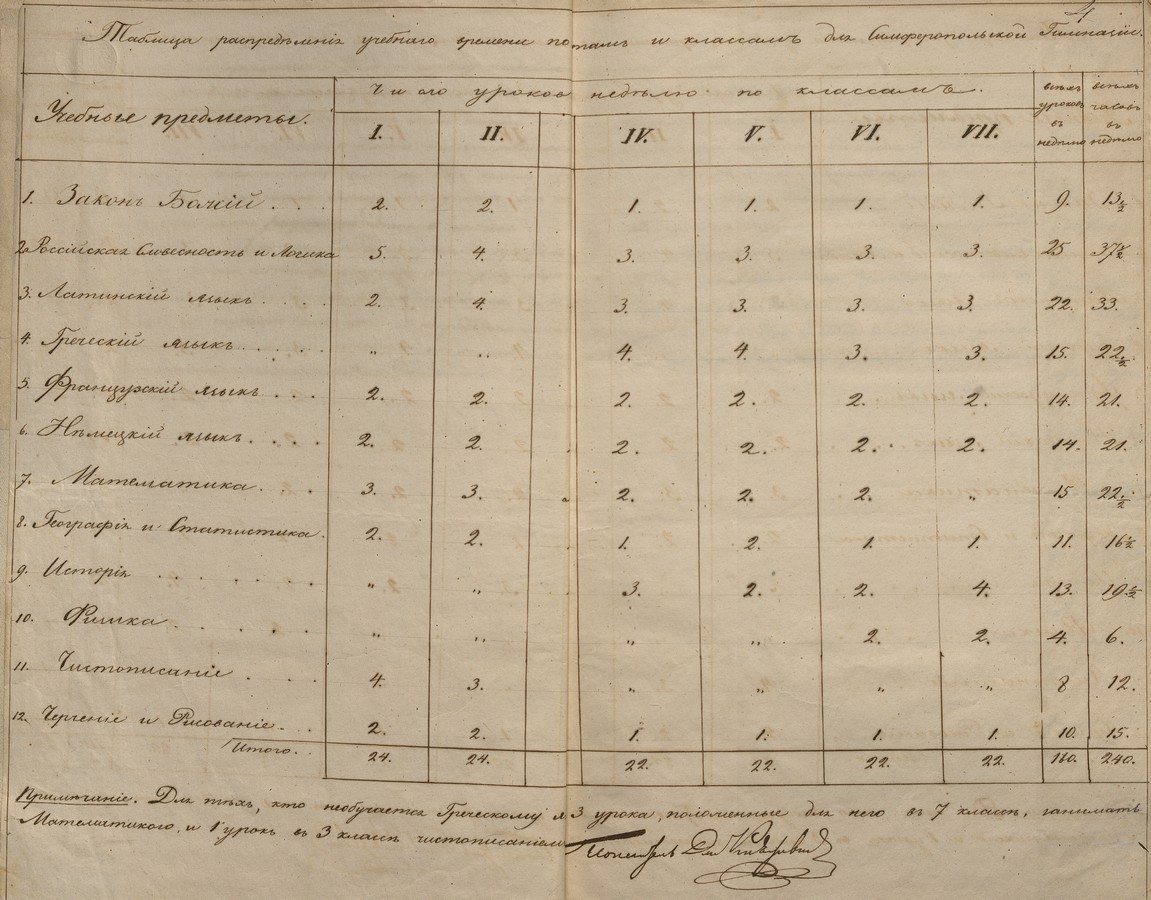 Таблица распредѣленія учебнаго времени по там и классамъ для Симферопольской Гимназіи.
Учебные предметы. Число уроковъ недѣлю по классамъ. всѣхъ уроковъ въ недѣлю всѣхъ часовъ въ недѣлю
I. II. IV. V. VI. VII.
1. Законъ Божій . . 2. 2. 1. 1. 1. 1. 9. 13½
2. Россійская Словесность и Логика 5. 4. 3. 3. 3. 3. 25 37½
3. Латинскій языкъ . . . . 2. 4. 3. 3. 3. 3. 22. 33.
4. Греческій языкъ . . . . . „ „ 4. 4. 3. 3. 15. 22½
5. Французскій языкъ . . . 2. 2. 2. 2. 2. 2. 14. 21.
6. Нѣмецкій языкъ . . . . 2. 2. 2. 2. 2. 2. 14. 21.
7. Математика . . . 3. 3. 2. 2. 2. „ 15 22½
8. Географія и Статистика . 2. 2. 1. 2. 1. 1. 11. 16½
9. Исторія . . . . . . „ „ 3. 2. 2. 4. 13. 19½
10. Физика . . . . . „ „ „ „ 2. 2. 4. 6.
11. Чистописаніе . . . 4. 3. „ „ „ „ 8 12.
12. Черченіе и Рисованіе . . . 2. 2. 1. 1. 1. 1. 10. 15.
Итого . . 24. 24. 22. 22. 22. 22. 160. 240.
Примѣчаніе. Для тѣхъ, кто необучается Греческому я 3 урока, положенные для него въ 7 классѣ, занимать
Математикою, и 1 урокъ въ 3 классѣ чистописаніем